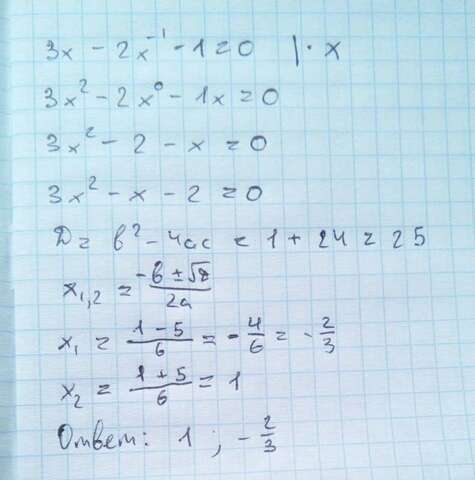 3x - 2x⁻¹ - 1 = 0 | · x
3x² - 2x⁰ - 1x = 0
3x² - 2 - x = 0
3x² - x - 2 = 0
D = b² - 4ac = 1 + 24 = 25
x₁,₂ = (-b ± √D)/2a
x₁ = (1 - 5)/6 = -4/6 = -2/3
x₂ = (1 + 5)/6 = 1
Ответ: 1 ; -2/3